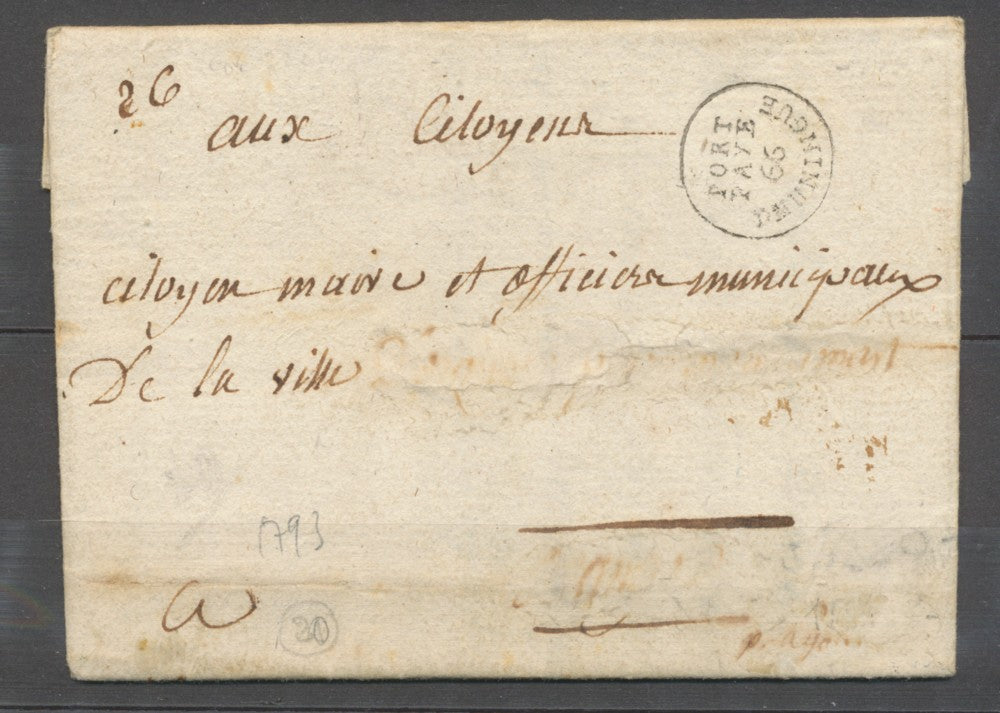 26
aux Citoyens
PORT
PAYE
66
HUNINGUE
citoyen maire et officiers municipaux
De la ville
1793
a
20